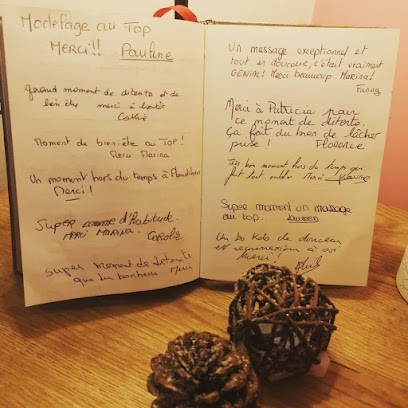 Modelage au TOP
MERCI!! Pauline
grand moment de détente et de
bien être merci à
Moment de bien-être au TOP!
Merci Marina
Un moment hors du temps à
Merci!
Super comme d'habitude.
MERCI MARINA. CAROLE
Super moment de détente
que du bonheur
Un massage exceptionnel et
tout en douceur, c'était vraiment
GENIAL! Merci beaucoup Marina!
Merci à Patricia pour
ce moment de détente.
Ça fait du bien de lâcher
prise! Florence
Très bon moment hors du temps qui
fait tout oublier. Merci Karine
Super moment un massage
au top.
Un de douceur
et à soi
Merci!